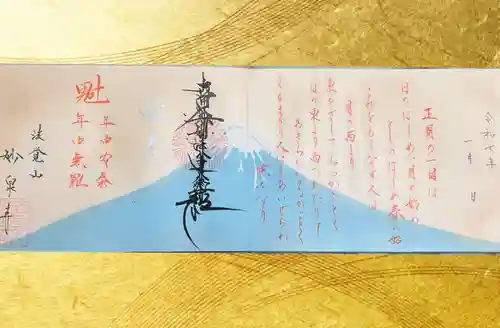 令和七年
一月 日
正月の一日は
日のはじめ、月の始め
としのはじめ春の始
これをもてなす人は
月の西より
東をさしてみつがごとく
日の東より西へわたりて
あきらかなるがごとく
とくもまさり人にもあいせられ
候なり
南無妙法蓮華経
年内安泰
年内無難
法覚山
妙泉寺